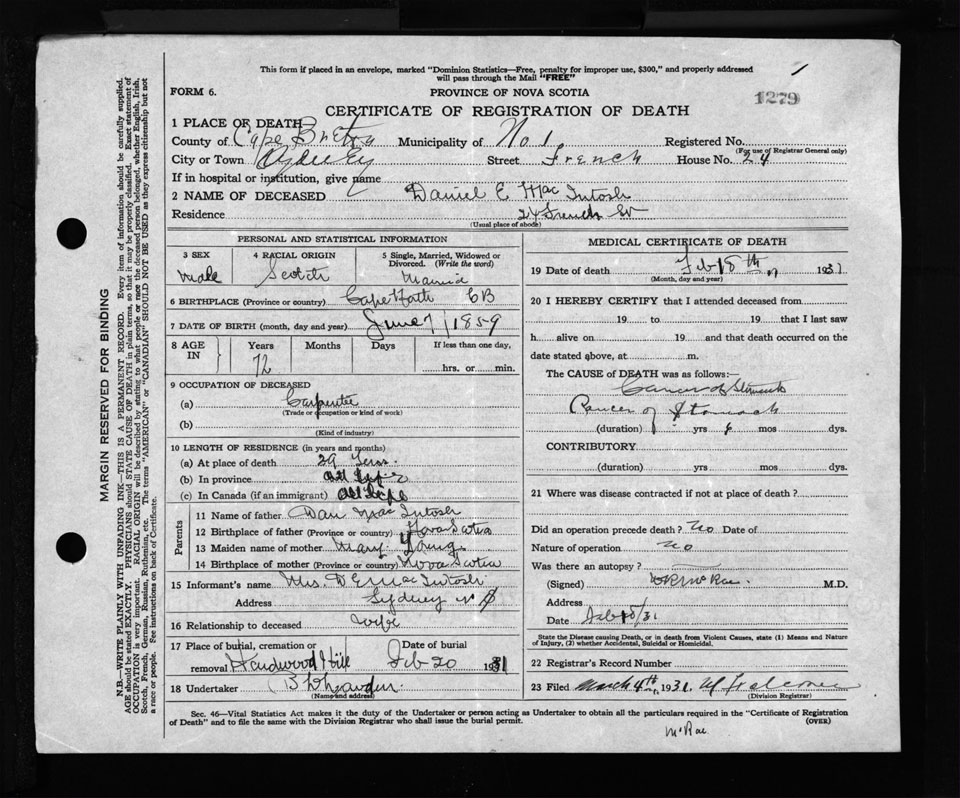 This form if placed in an envelope, marked "Dominion Statistics—Free, penalty for improper use, $300," and properly addressed
will pass through the Mail "FREE"
FORM 6.
PROVINCE OF NOVA SCOTIA
1279
CERTIFICATE OF REGISTRATION OF DEATH
1 PLACE OF DEATH
County of Cape Breton Municipality of No. 1 Registered No.
(For use of Registrar General only)
City or Town Sydney Street French House No. 24
If in hospital or institution, give name
2 NAME OF DECEASED Daniel E Mac Intosh
Residence 24 French St
(Usual place of abode)
MARGIN RESERVED FOR BINDING
N.B.—WRITE PLAINLY WITH UNFADING INK—THIS IS A PERMANENT RECORD. Every item of information should be carefully supplied.
AGE should be stated EXACTLY. PHYSICIANS should STATE CAUSE OF DEATH in plain terms, so that it may be properly classified. Exact statement of
OCCUPATION is very important. RACIAL ORIGIN will be described by stating to what people or race the deceased person belonged, whether English, Irish,
Scotch, French, German, Russian, Ruthenian, etc. The terms "AMERICAN" or "CANADIAN" SHOULD NOT BE USED as they express citizenship but not
a race or people. See instructions on back of Certificate.
PERSONAL AND STATISTICAL INFORMATION
3 SEX
Male
4 RACIAL ORIGIN
Scotch
5 Single, Married, Widowed or
Divorced. (Write the word)
Married
6 BIRTHPLACE (Province or country) Cape North CB
7 DATE OF BIRTH (month, day and year) June 7 1859
8 AGE
IN
Years
72
Months
Days
If less than one day,
hrs. or min.
9 OCCUPATION OF DECEASED
(a) Carpenter
(Trade or occupation or kind of work)
(b)
(Kind of industry)
10 LENGTH OF RESIDENCE (in years and months)
(a) At place of death 29 Years
(b) In province All Life
(c) In Canada (if an immigrant) All Life
Parents
11 Name of father Dan Mac Intosh
12 Birthplace of father (Province or country) Nova Scotia
13 Maiden name of mother Mary Young
14 Birthplace of mother (Province or country) Nova Scotia
15 Informant's name Mrs. D E Mac Intosh
Address Sydney N S
16 Relationship to deceased wife
17 Place of burial, cremation or
removal Hardwood Hill
Date of burial
Feb 20 1931
18 Undertaker
(Name and address)
MEDICAL CERTIFICATE OF DEATH
19 Date of death Feb 18th 1931
(Month, day and year)
20 I HEREBY CERTIFY that I attended deceased from
19 to 19 that I last saw
h alive on 19 and that death occurred on the
date stated above, at m.
The CAUSE OF DEATH was as follows:—
Cancer of Stomach
Cancer of Stomach
(duration) yrs 6 mos dys.
CONTRIBUTORY
(duration) yrs mos dys.
21 Where was disease contracted if not at place of death?
Did an operation precede death? No Date of
Nature of operation no
Was there an autopsy?
(Signed) McRae M.D.
Address
Date Feb 18/31
State the Disease causing Death, or in death from Violent Causes, state (1) Means and Nature
of Injury, (2) whether Accidental, Suicidal or Homicidal.
22 Registrar's Record Number
23 Filed March 4th 1931.
(Division Registrar)
Sec. 46—Vital Statistics Act makes it the duty of the Undertaker or person acting as Undertaker to obtain all the particulars required in the "Certificate of Registration
of Death" and to file the same with the Division Registrar who shall issue the burial permit.
(OVER)
McRae